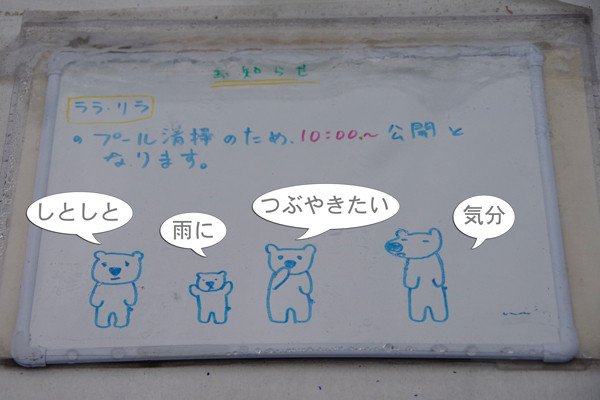 お知らせ
ララ・リラ
・プール清掃のため、10:00~公開と
なります。
しとしと
雨に
つぶやきたい
気分